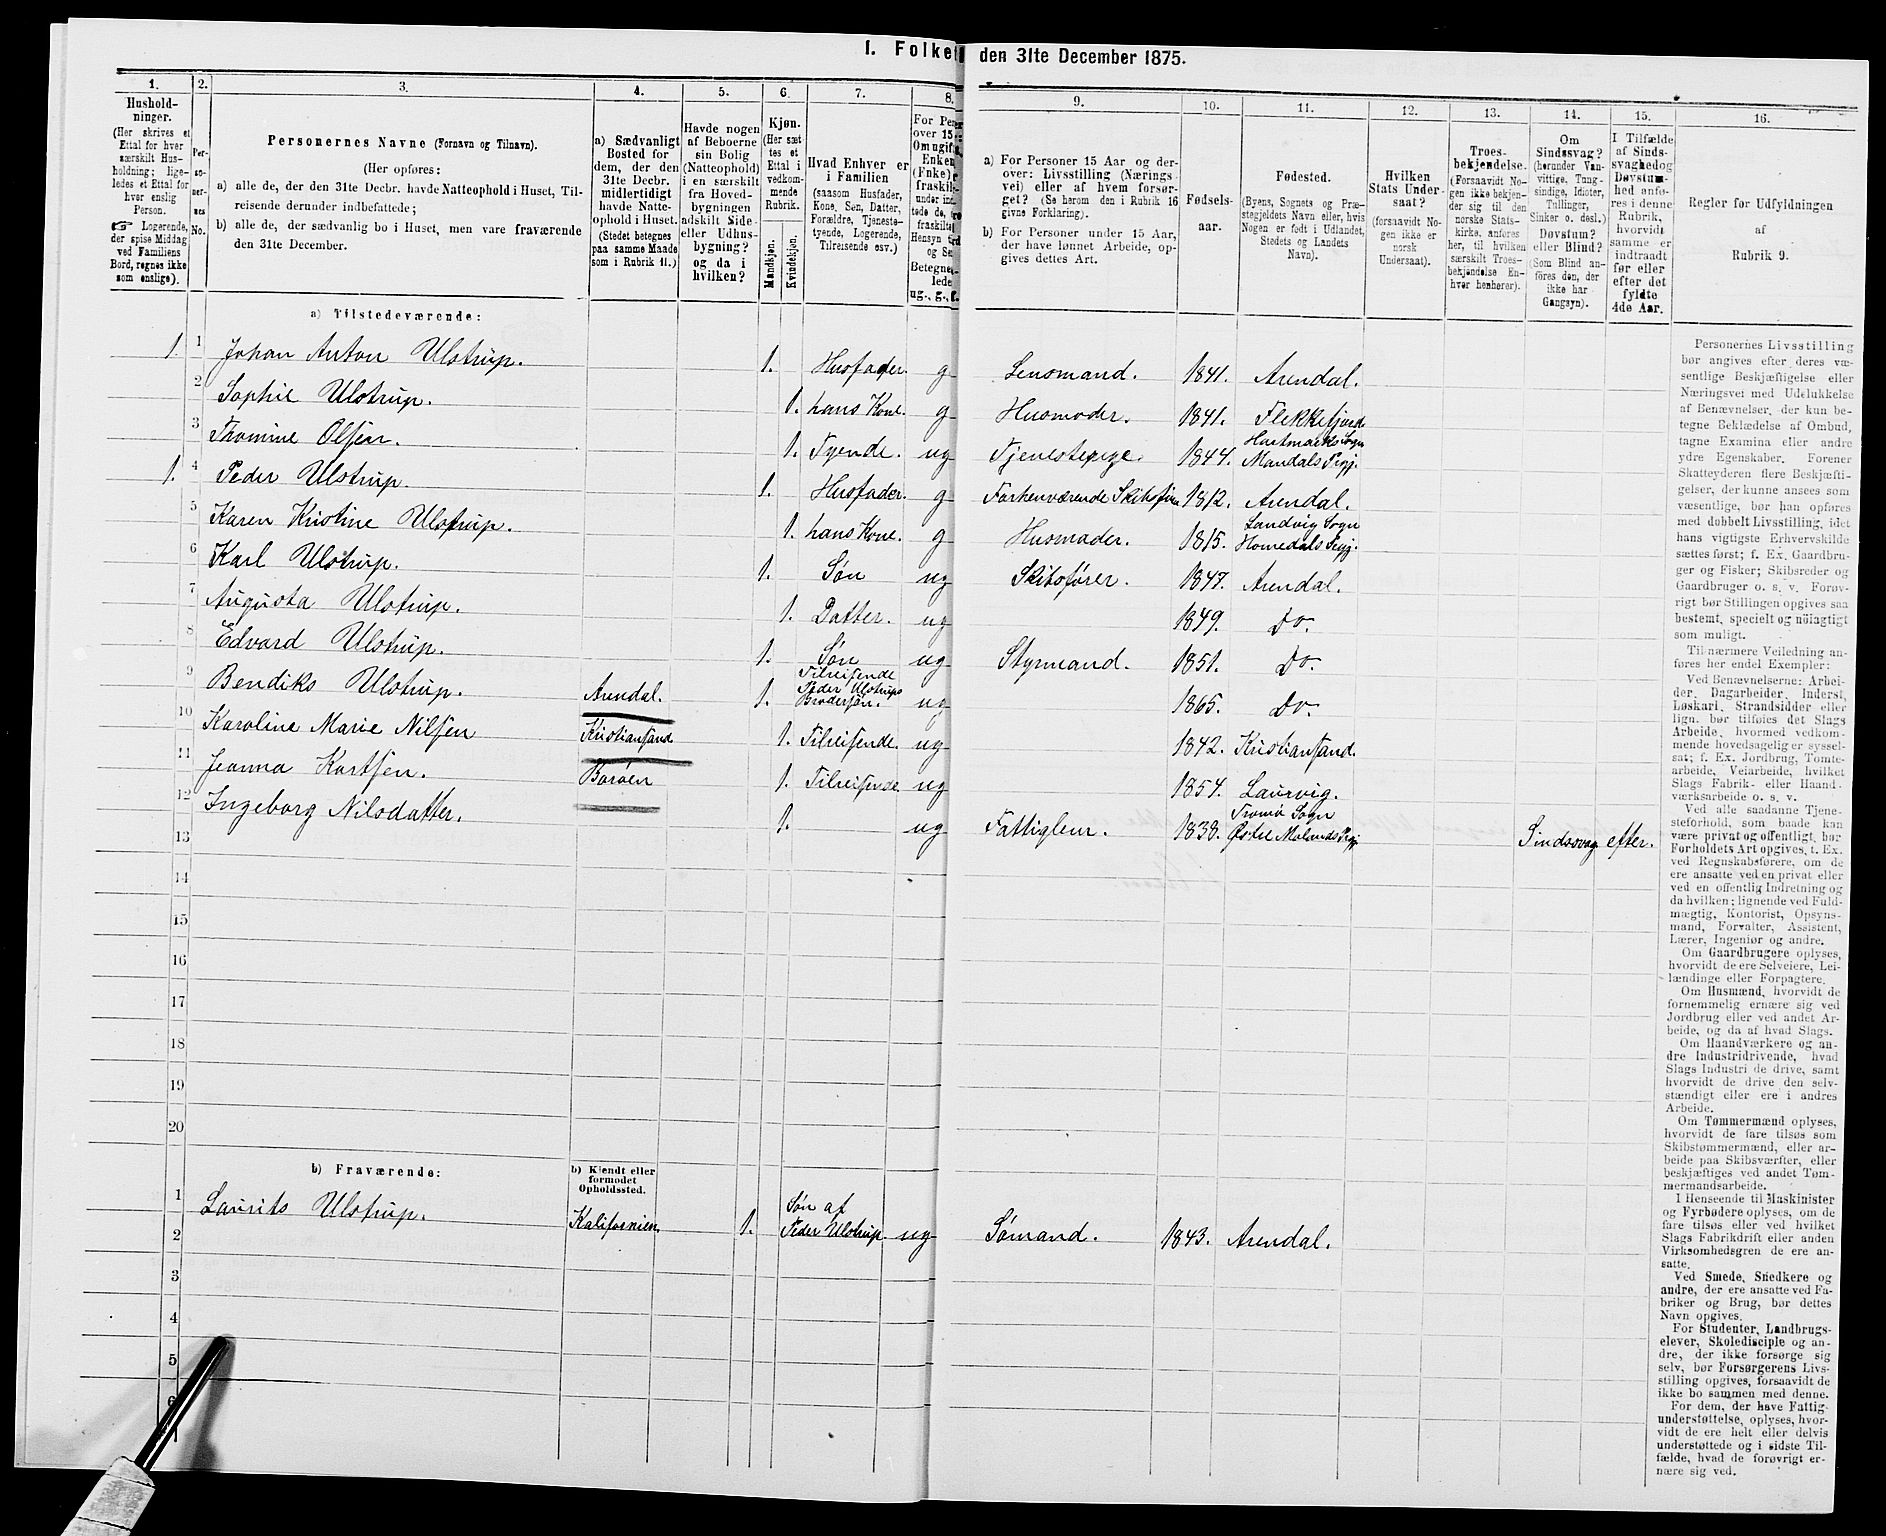 1. Folket
den 31te December 1875.
1.
2.
3.
4.
5.
6.
7.
8.
9.
10.
11.
12.
13.
14.
15.
16.
Hushold-
ninger.
(Her skrives et
Ettal for hver
særskilt Hus-
holdning; lige-
ledes et Ettal for
hver enslig
Person.
☞ Logerende,
der spise Middag
ved Familiens
Bord, regnes ikke
som enslige).
Per-
so-
ner-
nes
No.
Personernes Navne (Fornavn og Tilnavn).
(Her opføres:
a) alle de, der den 31te Decbr. havde Natteophold i Huset, Til-
reisende derunder indbefattede;
b) alle de, der sædvanlig bo i Huset, men vare fraværende
den 31te December.
a) Sædvanligt
Bosted for
dem, der den
31te Decbr.
midlertidigt
havde Natte-
ophold i Huset.
(Stedet betegnes
paa samme Maade
som i Rubrik 11.)
Havde nogen
af Beboerne
sin Bolig
(Natteophold)
i en særskilt
fra Hoved-
bygningen
adskilt Side-
eller Udhus-
bygning?
og da i
hvilken?
Kjøn.
(Her sæt
tes et
Ettal i
vedkom-
mende
Rubrik.
Mandkjøn.
Kvindekjøn.
Hvad Enhver er
i Familien
(saasom Husfader,
Kone, Søn, Datter,
Forældre, Tjeneste-
tyende, Logerende,
Tilreisende osv.)
For Per
over 15
Om ugift
Enken
(Fnke)
fraskil
under ind
tede de,
fraskilt
Hensyn
og Se
Betegne
lede
ug., g.,
a) For Personer 15 Aar og der-
over: Livsstilling (Nærings
vei) eller af hvem forsør-
get? (Se herom den i Rubrik 16
givne Forklaring).
b) For Personer under 15 Aar,
der have lønnet Arbeide, op-
gives dettes Art.
Fødsels-
aar.
Fødested.
(Byens, Sognets og Præ-
stegjeldets Navn eller, hvis
Nogen er født i Udlandet,
Stedets og Landets
Navn).
Hvilken
Stats Under-
saat?
(forsaavidt No-
gen ikke er
norsk
Undersaat).
Troes-
bekjendelse.
(Forsaavidt No-
gen ikke bekjen-
der sig til den
norske Stats-
kirke, anføres
her, til hvilken
særskilt Troes-
bekjendelse En-
hver henhører).
Om
Sindssvag?
(herunder Van-
vittige, Tung-
sindige, Idioter,
Tullinger,
Sinker o. desl.)
Døvstum?
eller Blind?
(Som Blind an-
føres den, der
ikke har
Gangsyn).
I Tilfælde
af Sinds-
svaghed og
Døvstum-
hed anfø-
res i denne
Rubrik,
hvorvidt
samme er
indtraadt
før eller
efter det
fyldte
4de Aar.
Regler for Udfyldningen
af
Rubrik 9.
a) Tilstedeværende:
1. 1 Johan Anton Ulstrup. 1. Husfader. g Lensmand. 1841. Arendal.
2 Sophie Ulstrup. 1. hans Kone. g Husmoder. 1841. Flekkefjord
3 Thomine Olsen. 1. Tyende. ug Tjenestepige. 1844. Hartmarks Sogn
Mandals Prgj.
1. 4 Peder Ulstrup. 1. Husfader. g Forhenværende Skibsfører 1812. Arendal.
5 Karen Kristine Ulstrup. 1. hans Kone. g Husmoder. 1815. Landvig Sogn
Homedals Prgj.
6 Karl Ulstrup. 1. Søn ug Skibsfører. 1847. Arendal.
7 Augusta Ulstrup. 1. Datter. ug 1849. Do.
8 Edvard Ulstrup. 1. Søn ug Styrmand. 1851. Do.
9 Bendiks Ulstrup. Arendal. 1. Tilreisende
Peder Ulstrups
Brodersøn. ug 1865. Do.
10 Karoline Marie Nilsen Kristiansand 1. Tilreisende. ug 1842. Kristiansand.
11 Jeanna Kortsen. Borøen 1. Tilreisende ug 1854. Laurvig.
12 Ingeborg Nilsdatter. 1. ug Fattiglem. 1838. Tromø Sogn
Østre Molands Prgj. Sindssvag efter.
13
14
15
16
17
18
19
20
b) Fraværende:
b) Kjendt eller
formodet
Opholdssted.
1 Laurits Ulstrup. Kalifornien 1. Søn af
Peder Ulstrup. ug Sømand. 1843. Arendal.
2
3
4
5
6
Personernes Livsstilling
bør angives efter deres væ-
sentlige Beskjæftigelse eller
Næringsvei med Udelukkelse
af Benævnelser, der kun be-
tegne Beklædelse af Ombud,
tagne Examina eller andre
ydre Egenskaber. Forener
Skatteyderen flere Beskjæfti-
gelser, der kunne ansees som
væsentlige, bør han opføres
med dobbelt Livsstilling, idet
hans vigtigste Erhvervskilde
sættes først; f. Ex. Gaardbru-
ger og Fisker; Skibsreder og
Gaardbruger o. s. v. Forøv-
rigt bør Stillingen opgives saa
bestemt, specielt og nøiagtigt
som muligt.
Til nærmere Veiledning an-
føres her endel Exempler:
Ved Benævnelserne: Arbei-
der, Dagarbeider, Inderst,
Løskari, Strandsidder eller
lign. bør tilføies det Slags
Arbeide, hvormed vedkom-
mende hovedsagelig er syssel-
sat; f. Ex. Jordbrug, Tomte-
arbeide, Veiarbeide, hvilket
Slags Fabrik- eller Haand-
værksarbeide o. s. v.
Ved alle saadanne Tjene-
steforhold, som baade kan
være privat og offentligt, bør
Forholdets Art opgives, t. Ex.
ved Regnskabsførere, om de
ere ansatte ved en privat eller
ved en offentlig Indretning og
da hvilken; lignende ved Fuld-
mægtig, Kontorist, Opsyns-
mand, Forvalter, Assistent,
Lærer, Ingeniør og andre.
Om Gaardbrugere oplyses,
hvorvidt de ere Selveiere, Lei-
lændinge eller Forpagtere.
Om Husmænd, hvorvidt de
fornemmelig ernære sig ved
Jordbrug eller ved andet Ar-
beide, og da af hvad Slags.
Om Haandværkere og an-
dre Industridrivende, hvad
Slags Industri de drive, samt
hvorvidt de drive den selv-
stændigt eller ere i andres
Arbeide.
Om Tømmermænd oplyses,
hvorvidt de fare tilsøs som
Skibstømmermænd, eller ar-
beide paa Skibsværfter, eller
beskjæftiges ved andet Tøm-
mermandsarbeide.
I Henseende til Maskinister
og Fyrbødere oplyses, om de
fare tilsøs eller ved hvilket
Slags Fabrikdrift eller anden
Virksomhedsgren de ere an-
satte.
Ved Smede, Snedkere og
andre, der ere ansatte ved Fa-
briker og Brug, bør dettes
Navn opgives.
For Studenter, Landbrugs-
elever, Skoledisciple og an-
dre, der ikke forsørge sig
selv, bør Forsørgerens Livs-
stilling opgives, forsaavidt de
ikke bo sammen med denne.
For dem, der have Fattig-
understøttelse, oplyses, hvor-
vidt de ere helt eller delvis
understøttede og i sidste Til-
fælde, hvad de forøvrigt er-
nære sig ved.